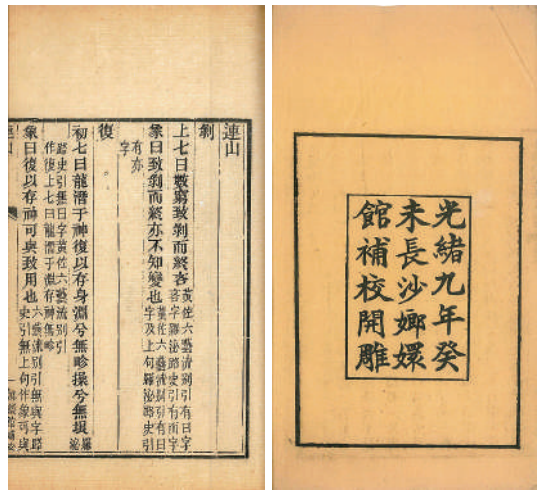 光緒九年癸
未長沙嫏嬛
館補校開雕
連山
剝
上七曰數窮致剝而終吝
黃佐六藝流別引有曰字
吝字羅泌路史引有而字
象曰致剝而終亦不知變也
黃佐六藝流別引有曰
字及上句羅泌路史引
有亦
字
復
初七曰龍潛于神復以存身淵兮無畛操兮無垠
羅
泌
路史引無曰字黃佐六藝流別引
作復上七曰龍潛于淵存神無畛
象曰復以存神可與致用也
六藝流別引無與字路
史引無上句作象可與